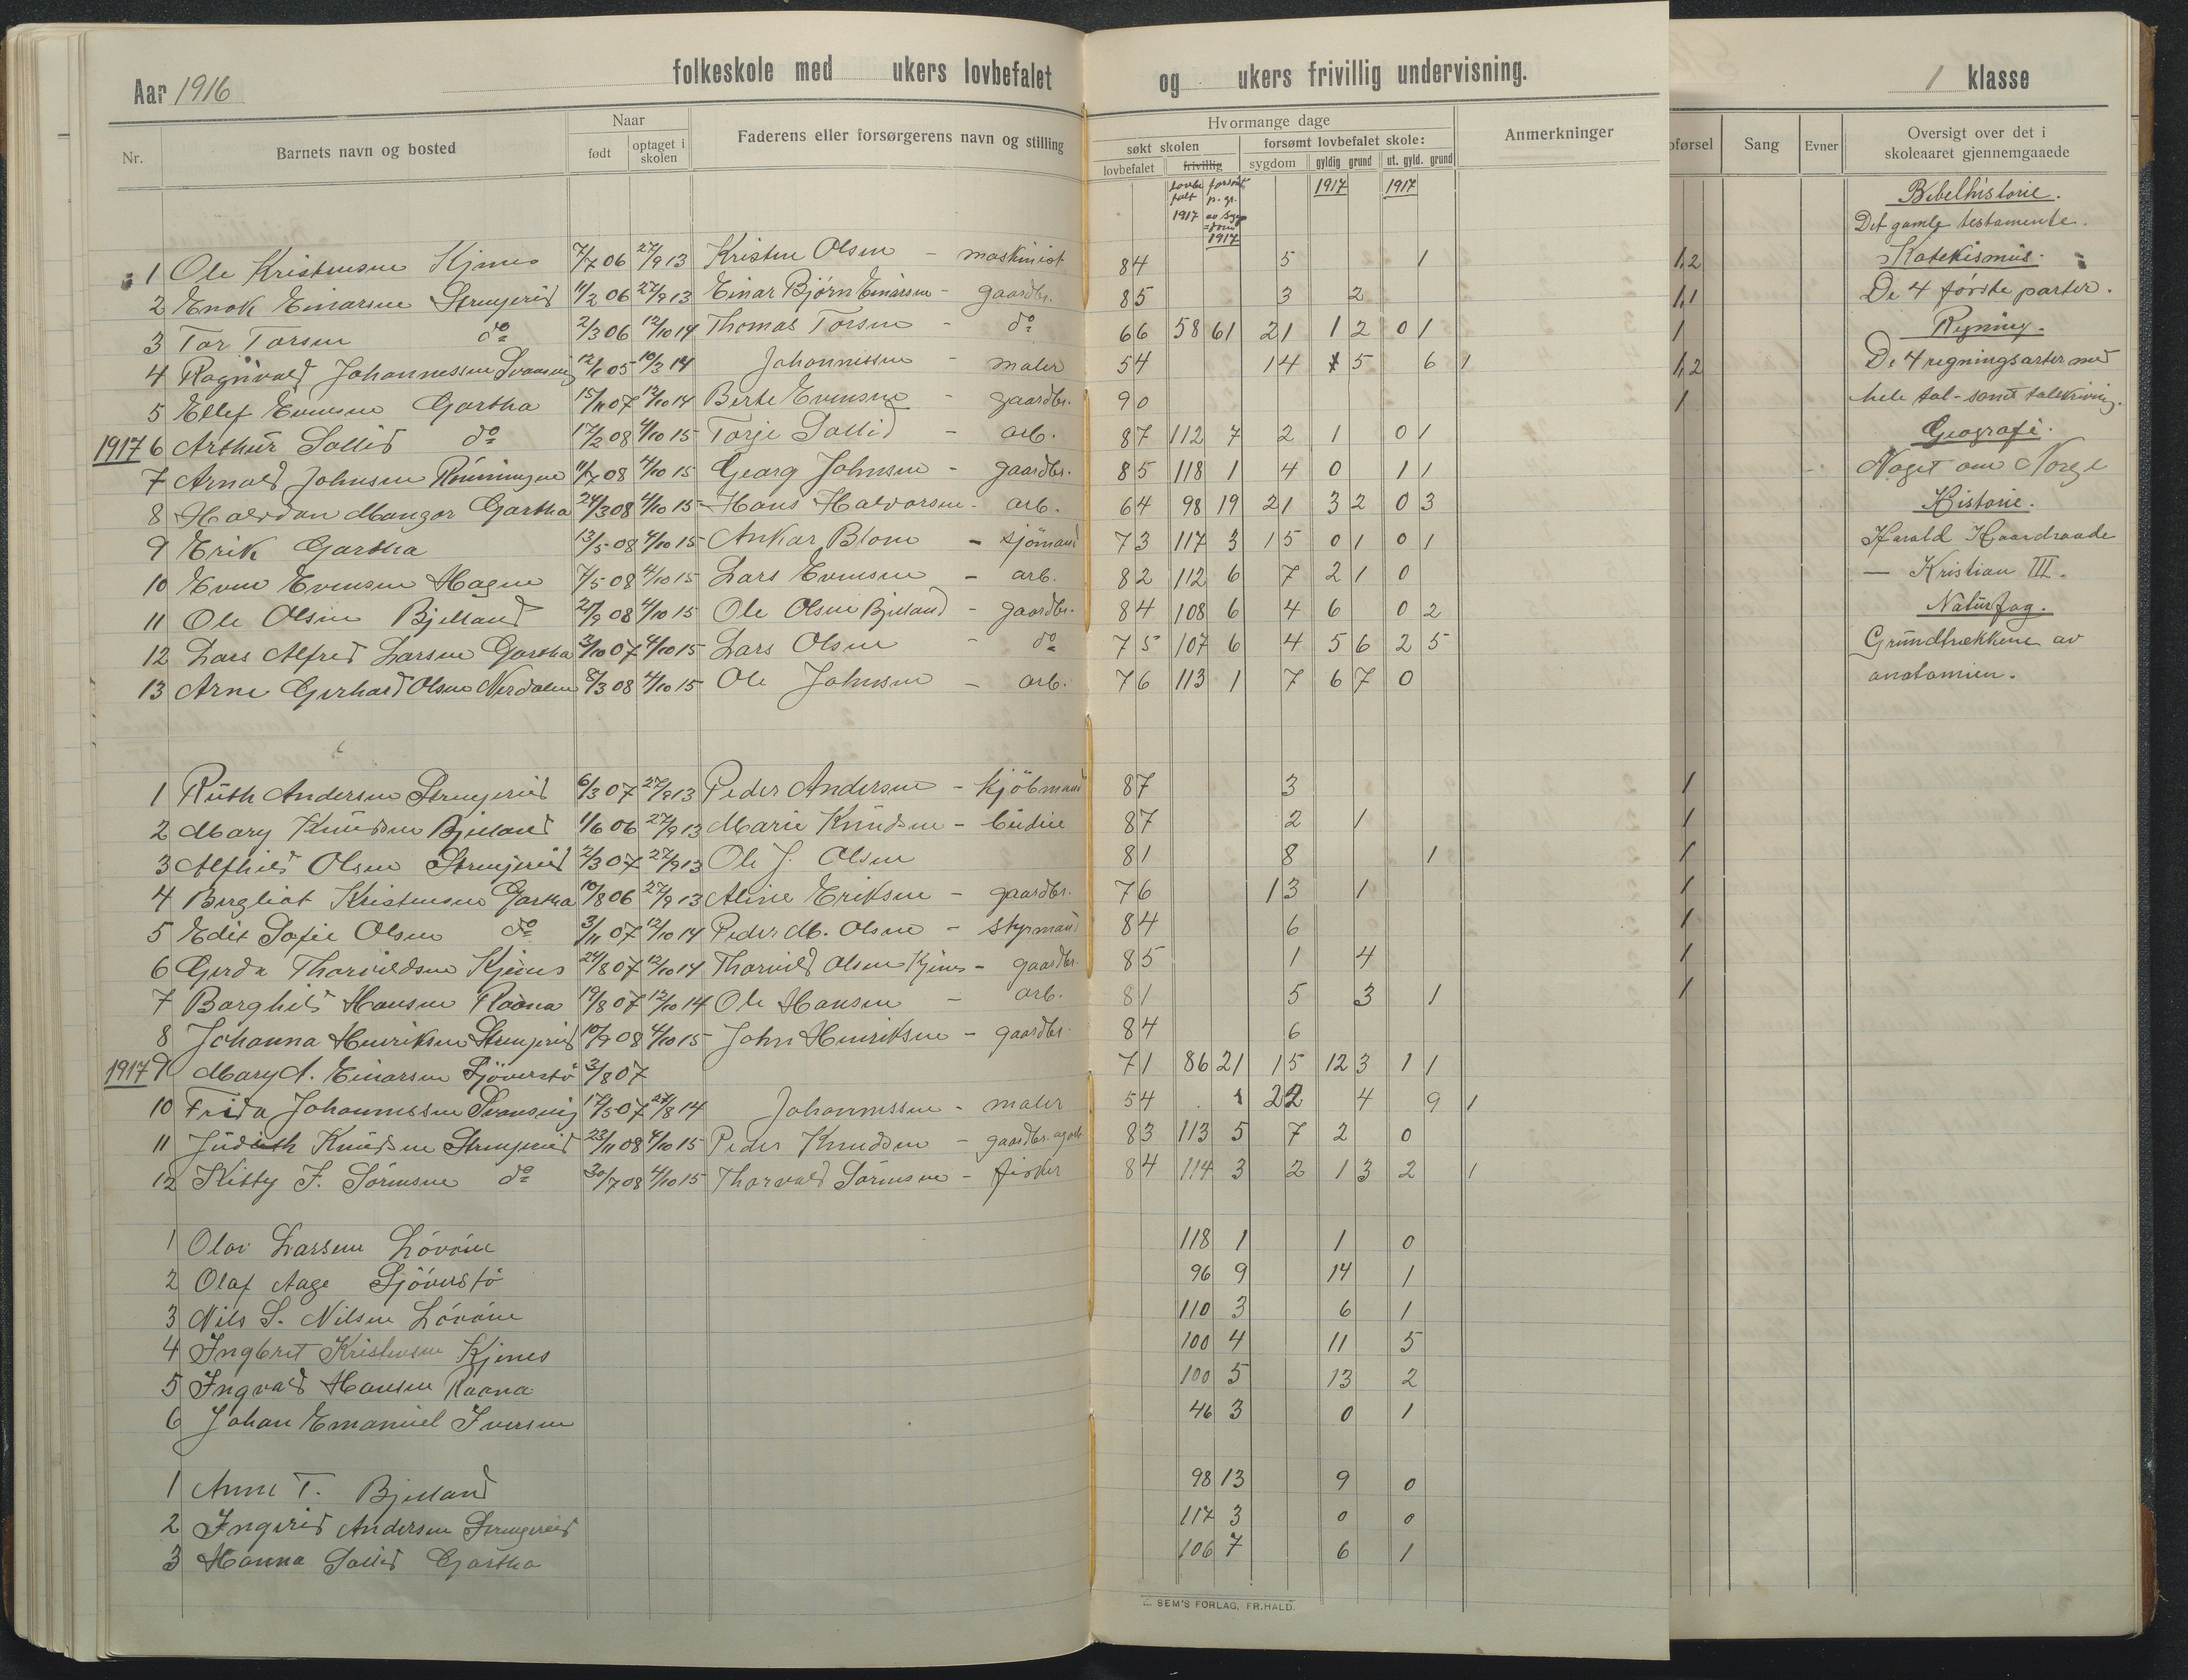 Aar 1916 folkeskole med ukers lovbefalet og ukers frivillig undervisning. 1 klasse
Nr. Barnets navn og bosted Naar født optaget i skolen Faderens eller forsørgerens navn og stilling Hvormange dage søkt skolen lovbefalet frivillig forsømt lovbefalet skole: sygdom gyldig grund ut. gyld. grund Anmerkninger førsel Sang Evner Oversigt over det i skoleaaret gjennemgaaede
lovbefalt 1917 forsømt p. gr. av sygdom 1917 1917 1917
Bibelhistorie.
Det gamle testamente.
1 Ole Kristensen Kjenes 7/7 06 27/9 13 Kristen Olsen - maskinist 84 5 1 1,2 Katekismus.
2 Enok Einarsen Strengereid 11/2 06 27/9 13 Einar Bjørn Einarsen - gaardbr. 85 3 2 1,1 De 4 første parter.
3 Tor Torsen do 2/3 06 12/10 14 Thomas Torsen - do 66 58 61 21 1 2 0 1 1 Regning.
4 Ragnvald Johannessen 12/1 05 10/3 14 Johannessen - maler 54 14 5 6 1 1,2 De 4 regningsarter med
5 Ellef Evensen Gartha 15/11 07 12/10 14 Berte Evensen - gaardbr. 90 1 hele tal - samt talskrivning.
1917 6 Arthur Sollid do 17/2 08 4/10 15 Torje Sollid - arb. 87 112 7 2 1 0 1 Geografi.
7 Arnold Johnsen Rønningen 11/7 08 4/10 15 Georg Johnsen - gaardbr. 85 118 1 4 0 1 1 Noget om Norge
8 Halvdan Mangor Gartha 24/3 08 4/10 15 Hans Halvorsen - arb. 64 98 19 21 3 2 0 3 Historie.
9 Erik Gartha 13/5 08 4/10 15 Ankar Blom - sjømand 73 117 3 15 0 1 0 1 Harald Haardraade
10 Even Evensen Hagen 7/5 08 4/10 15 Lars Evensen - arb. 82 112 6 7 2 1 0 — Kristian III.
11 Ole Olsen Bjelland 27/9 08 4/10 15 Ole Olsen Bjelland - gaardbr. 84 108 6 4 6 0 2 Naturfag.
12 Lars Alfred Larsen Gartha 3/10 07 4/10 15 Lars Olsen - do 75 107 6 4 5 6 2 5 Grundtrækkene av
13 Arne Gerhard Olsen Nerdalen 8/3 08 4/10 15 Ole Johnsen - arb. 76 113 1 7 6 7 0 anatomien.
1 Ruth Andersen Strengereid 6/3 07 27/9 13 Peder Andersen - kjøbmand 87 3 1
2 Mary Knudsen Bjelland 1/6 06 27/9 13 Marie Knudsen - budeie 87 2 1 1
3 Alfhild Olsen Strengereid 2/3 07 27/9 13 Ole J. Olsen 81 8 1 1
4 Bergliot Kristensen Gartha 10/8 06 27/9 13 Aline Eriksen - gaardbr. 76 13 1 1
5 Edit Sofie Olsen do 3/11 07 12/10 14 Peder M. Olsen - styrmand 84 6 1
6 Gerda Thorvaldsen Kjenes 24/8 07 12/10 14 Thorvald Olsen Kjenes - gaardbr. 85 1 4 1
7 Borghild Hansen Raana 19/8 07 12/10 14 Ole Hansen - arb. 81 5 3 1 1
8 Johanna Henriksen Strengereid 10/9 08 4/10 15 John Henriksen - gaardbr. 84 6
1917 9 Mary A. Einarsen Sjøverstø 3/8 07 71 86 21 15 12 3 1 1
10 Frida Johannessen 17/5 07 27/8 14 Johannessen - maler 54 22 4 9 1
11 Judith Knudsen Strengereid 23/11 08 4/10 15 Peder Knudsen - gaardbr. 83 113 5 7 2 0
12 Kitty F. Sørensen do 30/7 08 4/10 15 Thorvald Sørensen - fisker 84 114 3 2 1 3 2 1
1 Olav Larsen Løvøen 118 1 1 0
2 Olaf Aage Sjøverstø 96 9 14 1
3 Nils S. Nilsen Løvøen 110 3 6 1
4 Ingbret Kristensen Kjenes 100 4 11 5
5 Ingvald Hansen Raana 100 5 13 2
6 Johan Emanuel Iversen 46 3 0 1
1 Anne T. Bjelland 98 13 9 0
2 Ingerid Andersen Strengereid 117 3 0 0
3 Hanna Sollid Gartha 106 7 6 1
SEM'S FORLAG, FR.HALD.